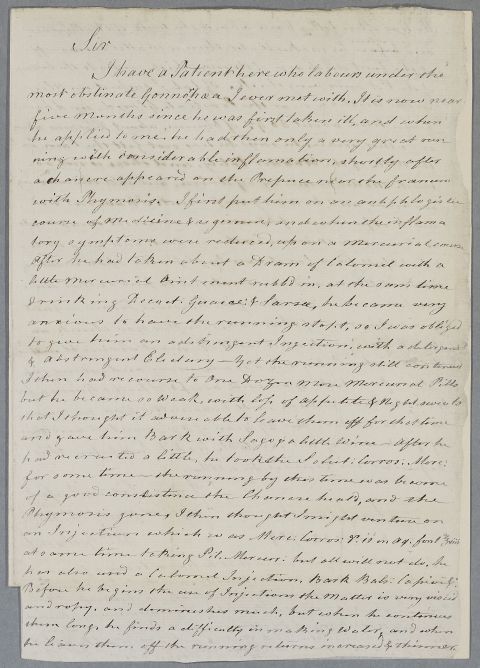 Sir
I have a Patient here who labours under the
most obstinate Gonnorhæa I ever met with. It is now near
five Months since he was first taken ill, and when
he applied to me: he had then only a very great run
ning with considerable inflamation, shortly after
a chancre appeared on the Prepuce near the franum
with Phymosis. I first put him on an antiphlogistic
course of Medicine & regimen, and when the inflama
tory symptoms were reduced, upon a Mercurial course
After he had taken about a Dram of Calomel with a
little Mercurial Ointment rubb'd in, at the same time
drinking Decoct. Guaiac: & Sarsæ, he became very
anxious to have the running stopt, so I was obliged
to give him an adstringent Injection, with a
& Abstringent Electary — Yet the running still continued
I then had recourse to One Dozen more Mercurial Pills
but he became so weak, with loss of appetite & Night sweats
that I thought it adviseable to leave them off for that time
and gave him Bark with Sago & a little Wine — After he
had recruited a little, he took the Solut: Corros: Merc:
for some time — the running by this time was become
of a good consistence the Chancre heal'd, and the
Phymosis gone, I then thought I might venture on
an Injection which was Merc: Corros: gr. ii in Aq. font
at same time taking Pil. Mercur: but all will not do, he
has also used a Calomel Injection, Bark Bals: Capivi &c
Before he begins the use of Injections the Matter is very viscid
and ropy, and diminishes much, but when he continues
them long, he finds a difficulty in making Water, and when
he leaves them off the running returns increased & thinner